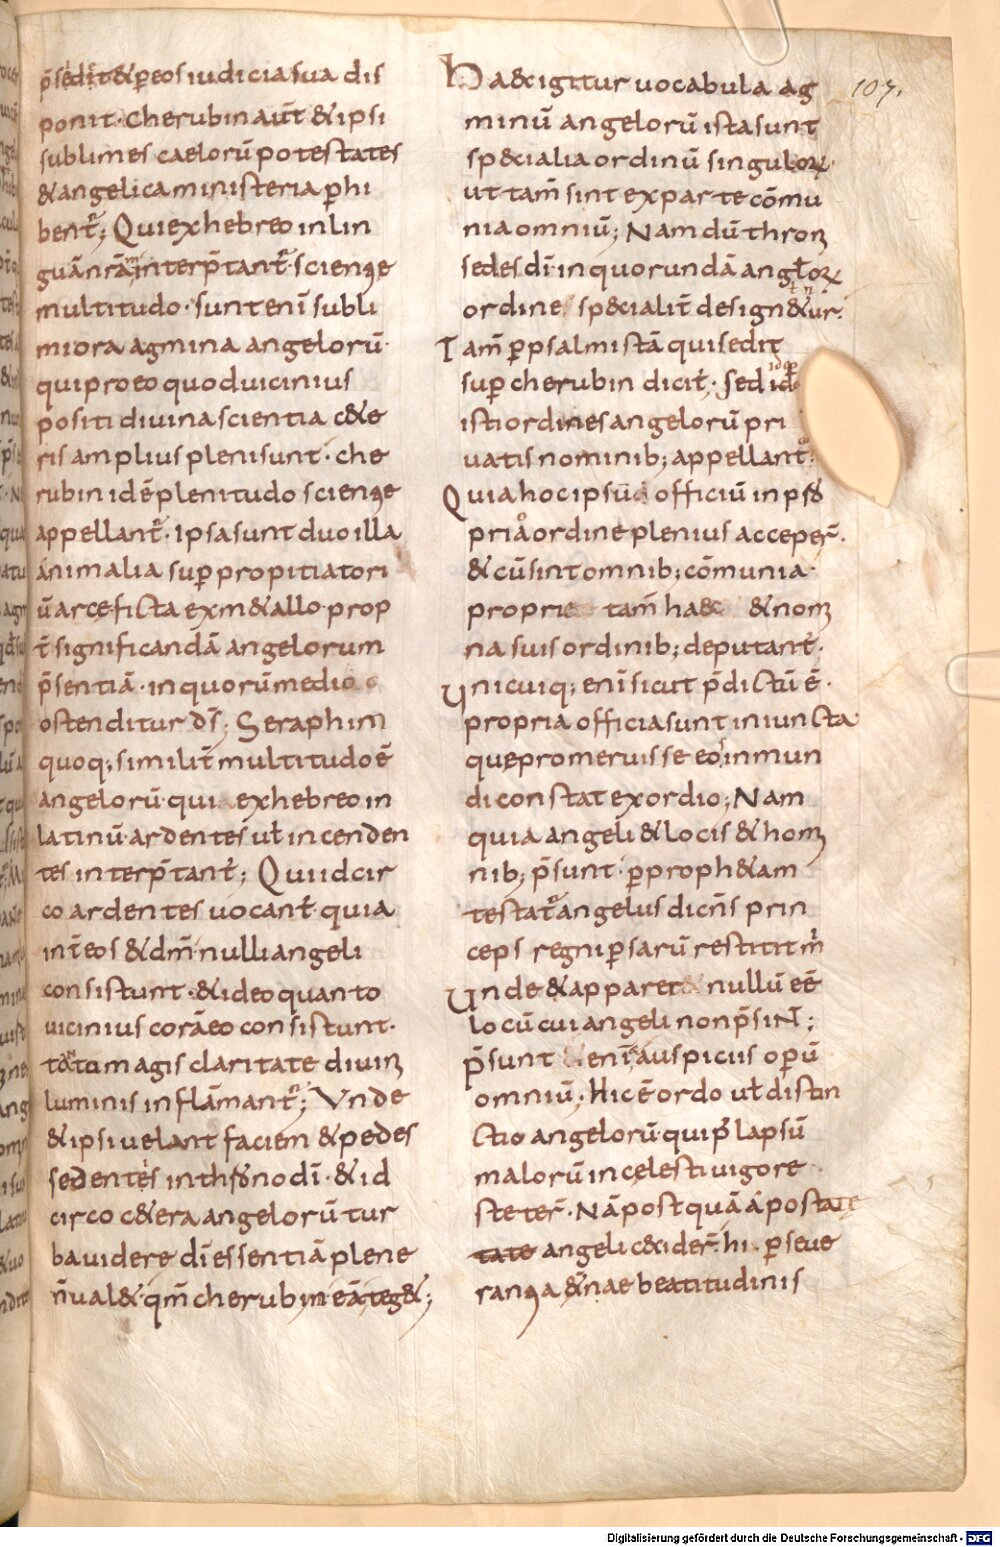 p̄sedit & p̱ eos iudicia sua dis
ponit. Cherubin aut̄ & ipsi
sublimes caelorū potestates
& angelica ministeria p̱hi
bent᷑; Qui ex hebreo in lin
guā nr̄ā interp̄tant᷑ scientiae
multitudo. sunt eni᷑ subli
miora agmina angelorū.
qui pro eo quod uicinius
positi diuina scientia c&e
ris amplius pleni sunt. che
rubin id ē plenitudo scientiae
appellant᷑. Ipsa sunt duo illa
animalia sup̱ propitiatori
ū arce ficta ex m&allo. prop
t̄ significandā angelorum
p̄sentiā. in quorū medio
ostenditur d̄s; Seraphim
quoq; similit̄ multitudo ē
angelorū. qui ex hebreo in
latinū ardentes ut̄ incenden
tes interp̄tant᷑; Qui idcir
co ardentes uocant᷑ quia
int̄ eos & dm̄ nulli angeli
consistunt. & ideo quanto
uicinius corā eo consistunt.
tāto magis claritate diuini
luminis inflāmant᷑; Vnde
& ipsi uelant faciem & pedes
sedentes in throno dī. & id
circo c&era angelorū tur
ba uidere dī essentiā plene
n̄ ual&. qm̄ cherubin eā teg&;
Ha&c igitur uocabula ag
minū angelorū ista sunt
sp&cialia ordinū singuloꝝ.
ut tam̄ sint ex parte cōmu
nia omniū; Nam dū throni
sedes dī in quorundā angl̄oꝝ
ordine sp&cialit̄ design&ur.
Tam̄ p̱ psalmistā qui sedit
sup̱ cherubin dicit᷑. sed id
isti ordines angelorū pri
uatis nominib; appellant᷑.
Quia hoc ipsū officiū in pro
pria ordine plenius acceper̄.
& cū sint omnib; cōmunia.
proprie tam̄ ha&c & nomi
na suis ordinib; deputant᷑.
Unicuiq; eni᷑ sicut p̄dictū ē.
propria officia sunt iniuncta
que promeruisse eos in mun
di constat exordio; Nam
quia angeli & locis & homi
nib; p̄sunt. p̱ proph&am
testat᷑ angelus dicn̄s prin
ceps regni p̱sarū restitit m̄
Unde & appar& nullū eē
locū cui angeli non p̄siNt;
p̄sunt eni᷑ auspiciis op̱ū
omniū. Hic ē ordo ut̄ distin
ctio angelorū. qui p᷑ lapsū
malorū in celesti uigore
steter̄. Nā postquā apostate
tate angeli c&ider̄. hi p̱seue
rantia &n̄ae beatitudinis
107.
Digitalisierung gefördert durch die Deutsche Forschungsgemeinschaft - DFG